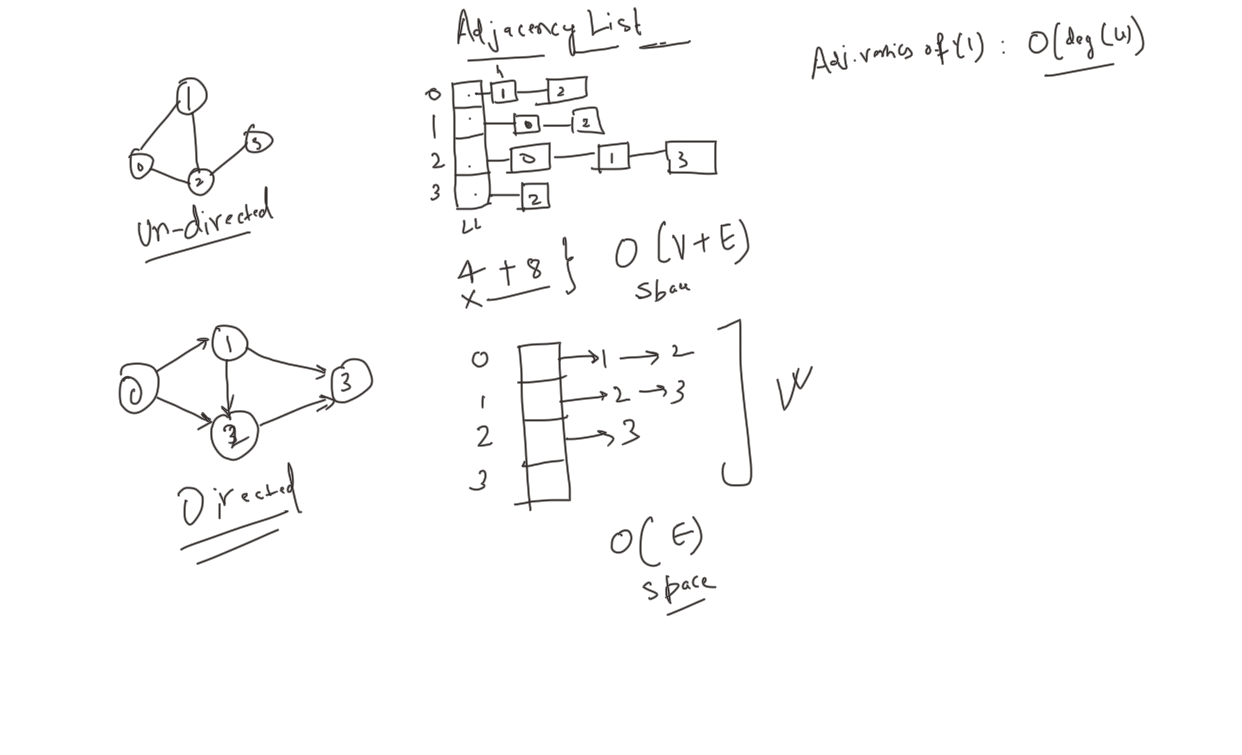 Adjacency List
Adj. vertices of V(1) : O(deg(u))
1
0
2
3
Un-directed
0 . 1 2
1 . 0 2
2 . 0 1 3
3 . 2
LL
4 + 8 } O(V+E)
x
Space
0
1
2
3
Directed
0 → 1 → 2
1 → 2 → 3
2 → 3
3
O(E)
Space